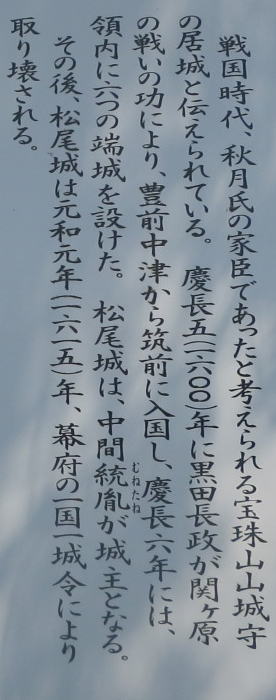 戦国時代、秋月氏の家臣であったと考えられる宝珠山山城守
の居城と伝えられている。　慶長五(一六〇〇)年に黒田長政が関ヶ原
の戦いの功により、豊前中津から筑前に入国し、慶長六年には、
領内に六つの端城を設けた。　松尾城は、中間統胤(むねたね)が城主となる。
その後、松尾城は元和元年(一六一五)年、幕府の一国一城令により
取り壊される。